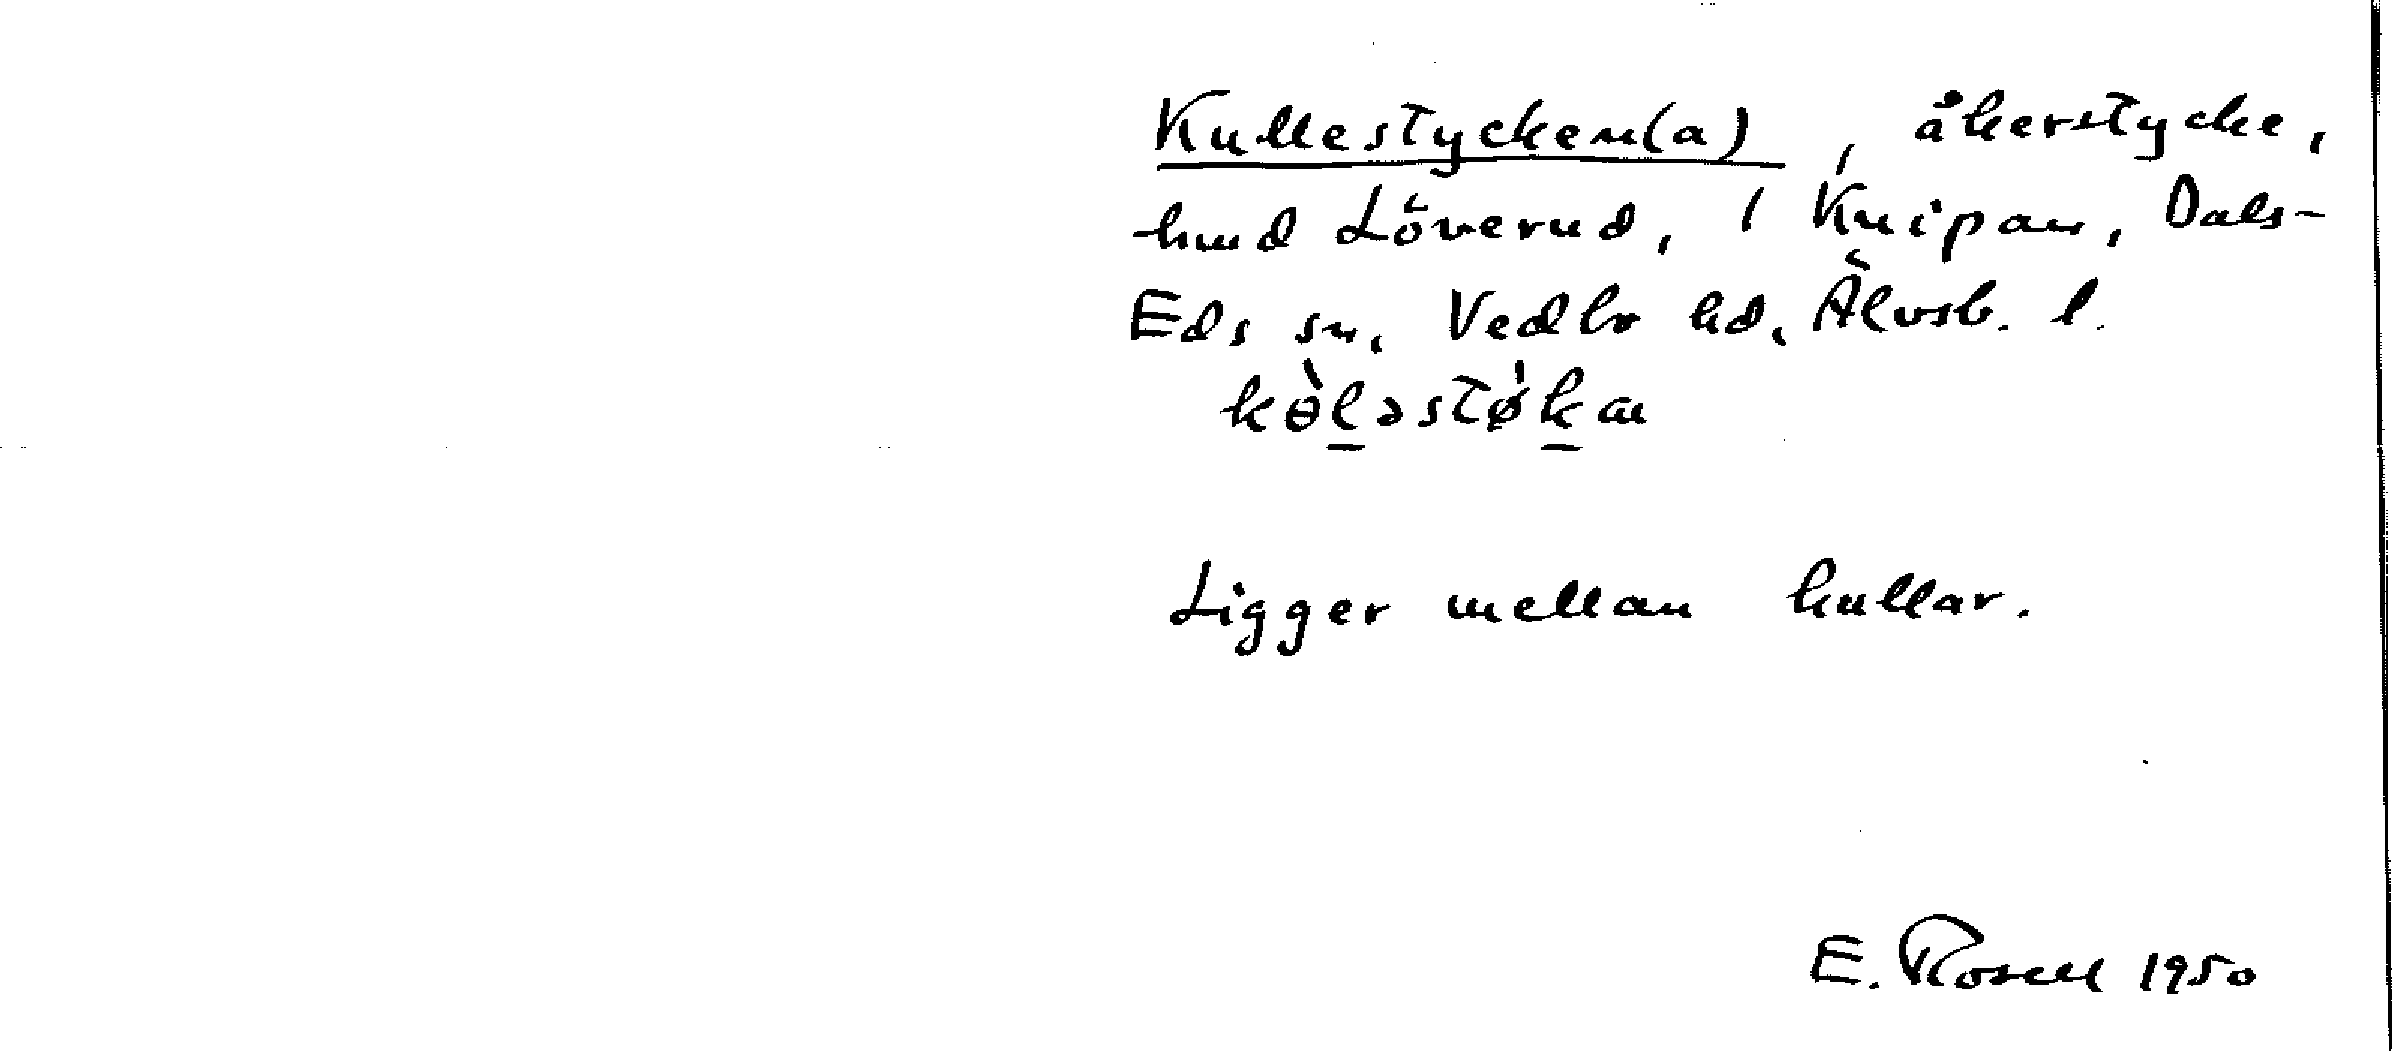 Kullestycken(a), åkerstycke,
hmd Löverud, 1 Knipan, Dals-
Eds sn, Vedbo hd, Älvsb. l.
kɵ̀l̲əstǿk̲a
Ligger mellan kullar.
E. Rosell 1950